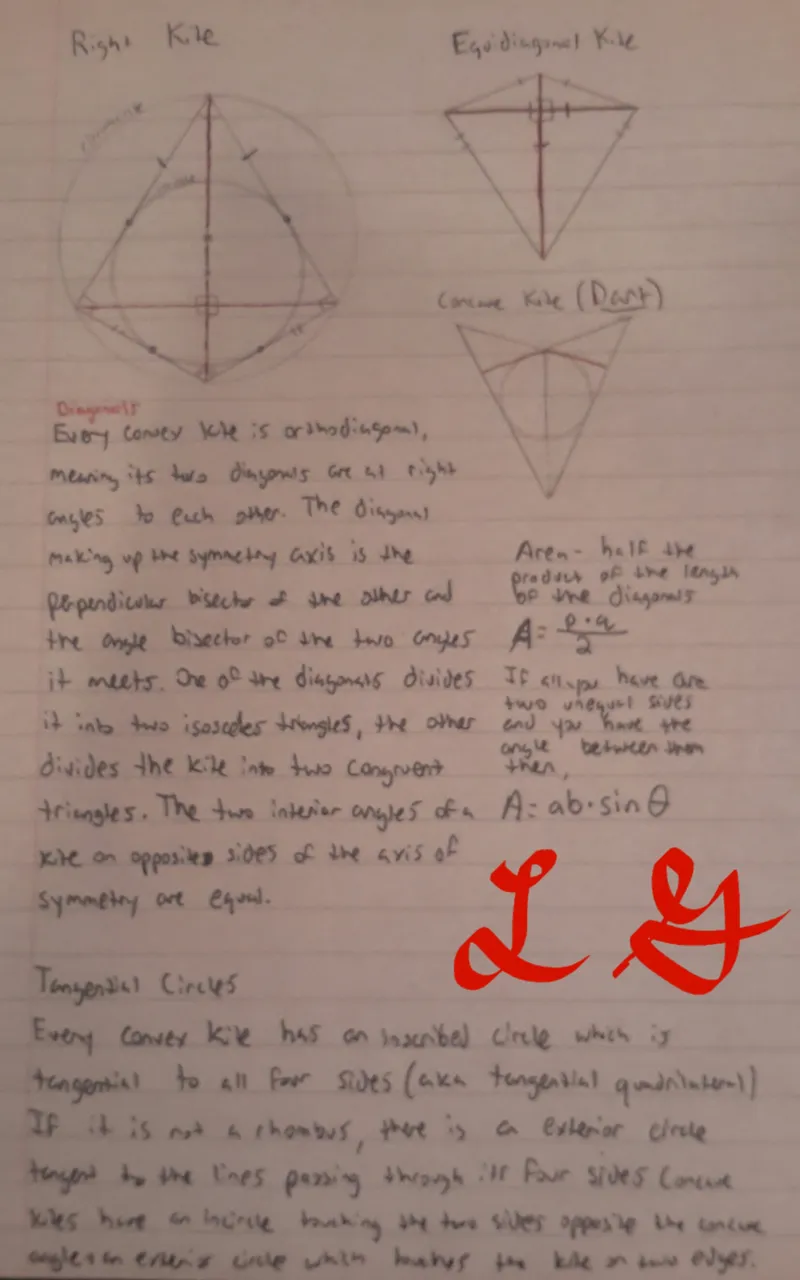 Right Kite
Equidiagonal Kite
circumcircle
incircle
Concave Kite (Dart)
Diagonals
Every convex kite is orthodiagonal,
meaning its two diagonals are at right
angles to each other. The diagonal
making up the symmetry axis is the
perpendicular bisector of the other and
the angle bisector of the two angles
it meets. One of the diagonals divides
it into two isosceles triangles, the other
divides the kite into two congruent
triangles. The two interior angles of a
kite on opposite sides of the axis of
symmetry are equal.
Area - half the
product of the length
of the diagonals
A = p·q/2
If all you have are
two unequal sides
and you have the
angle between them
then,
A = ab·sin θ
L G
Tangential Circles
Every convex kite has an inscribed circle which is
tangential to all four sides (aka tangential quadrilateral)
If it is not a rhombus, there is a exterior circle
tangent to the lines passing through its four sides Concave
kites have an incircle touching the two sides opposite the concave
angle & an exterior circle which touches the kite on two edges.